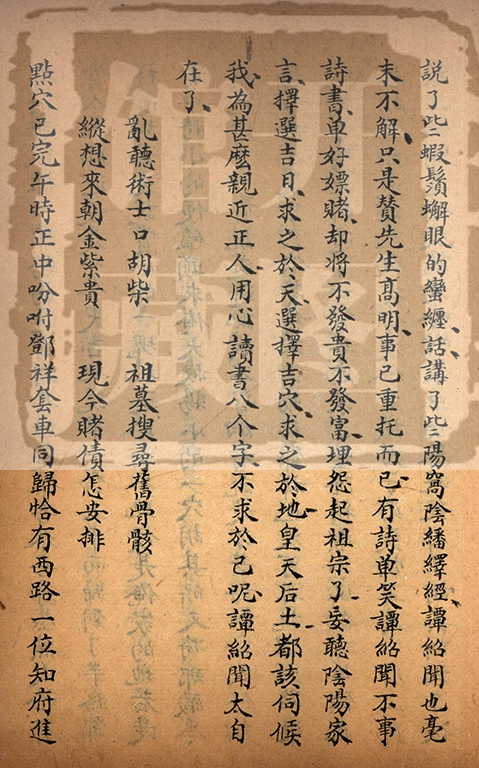 說了些蝦鬚蠏眼的蠻纏話講了些陽窩陰繙繹經譚紹聞也毫
末不解只是賛先生髙明事已重托而已有詩单笑譚紹聞不事
詩書单好嫖賭却将不發貴不發富埋怨起祖宗了妄聽陰陽家
言擇選吉日求之於天選擇吉穴求之於地皇天后土都該伺候
我為甚麽親近正人用心讀書八个字不求於己呢譚紹聞太自
在了
亂聽術士口胡柴 祖墓搜尋舊骨骸
縱想來朝金紫貴 現今賭債怎安排
點穴已完午時正中吩咐鄧祥套車同歸恰有西路一位知府進